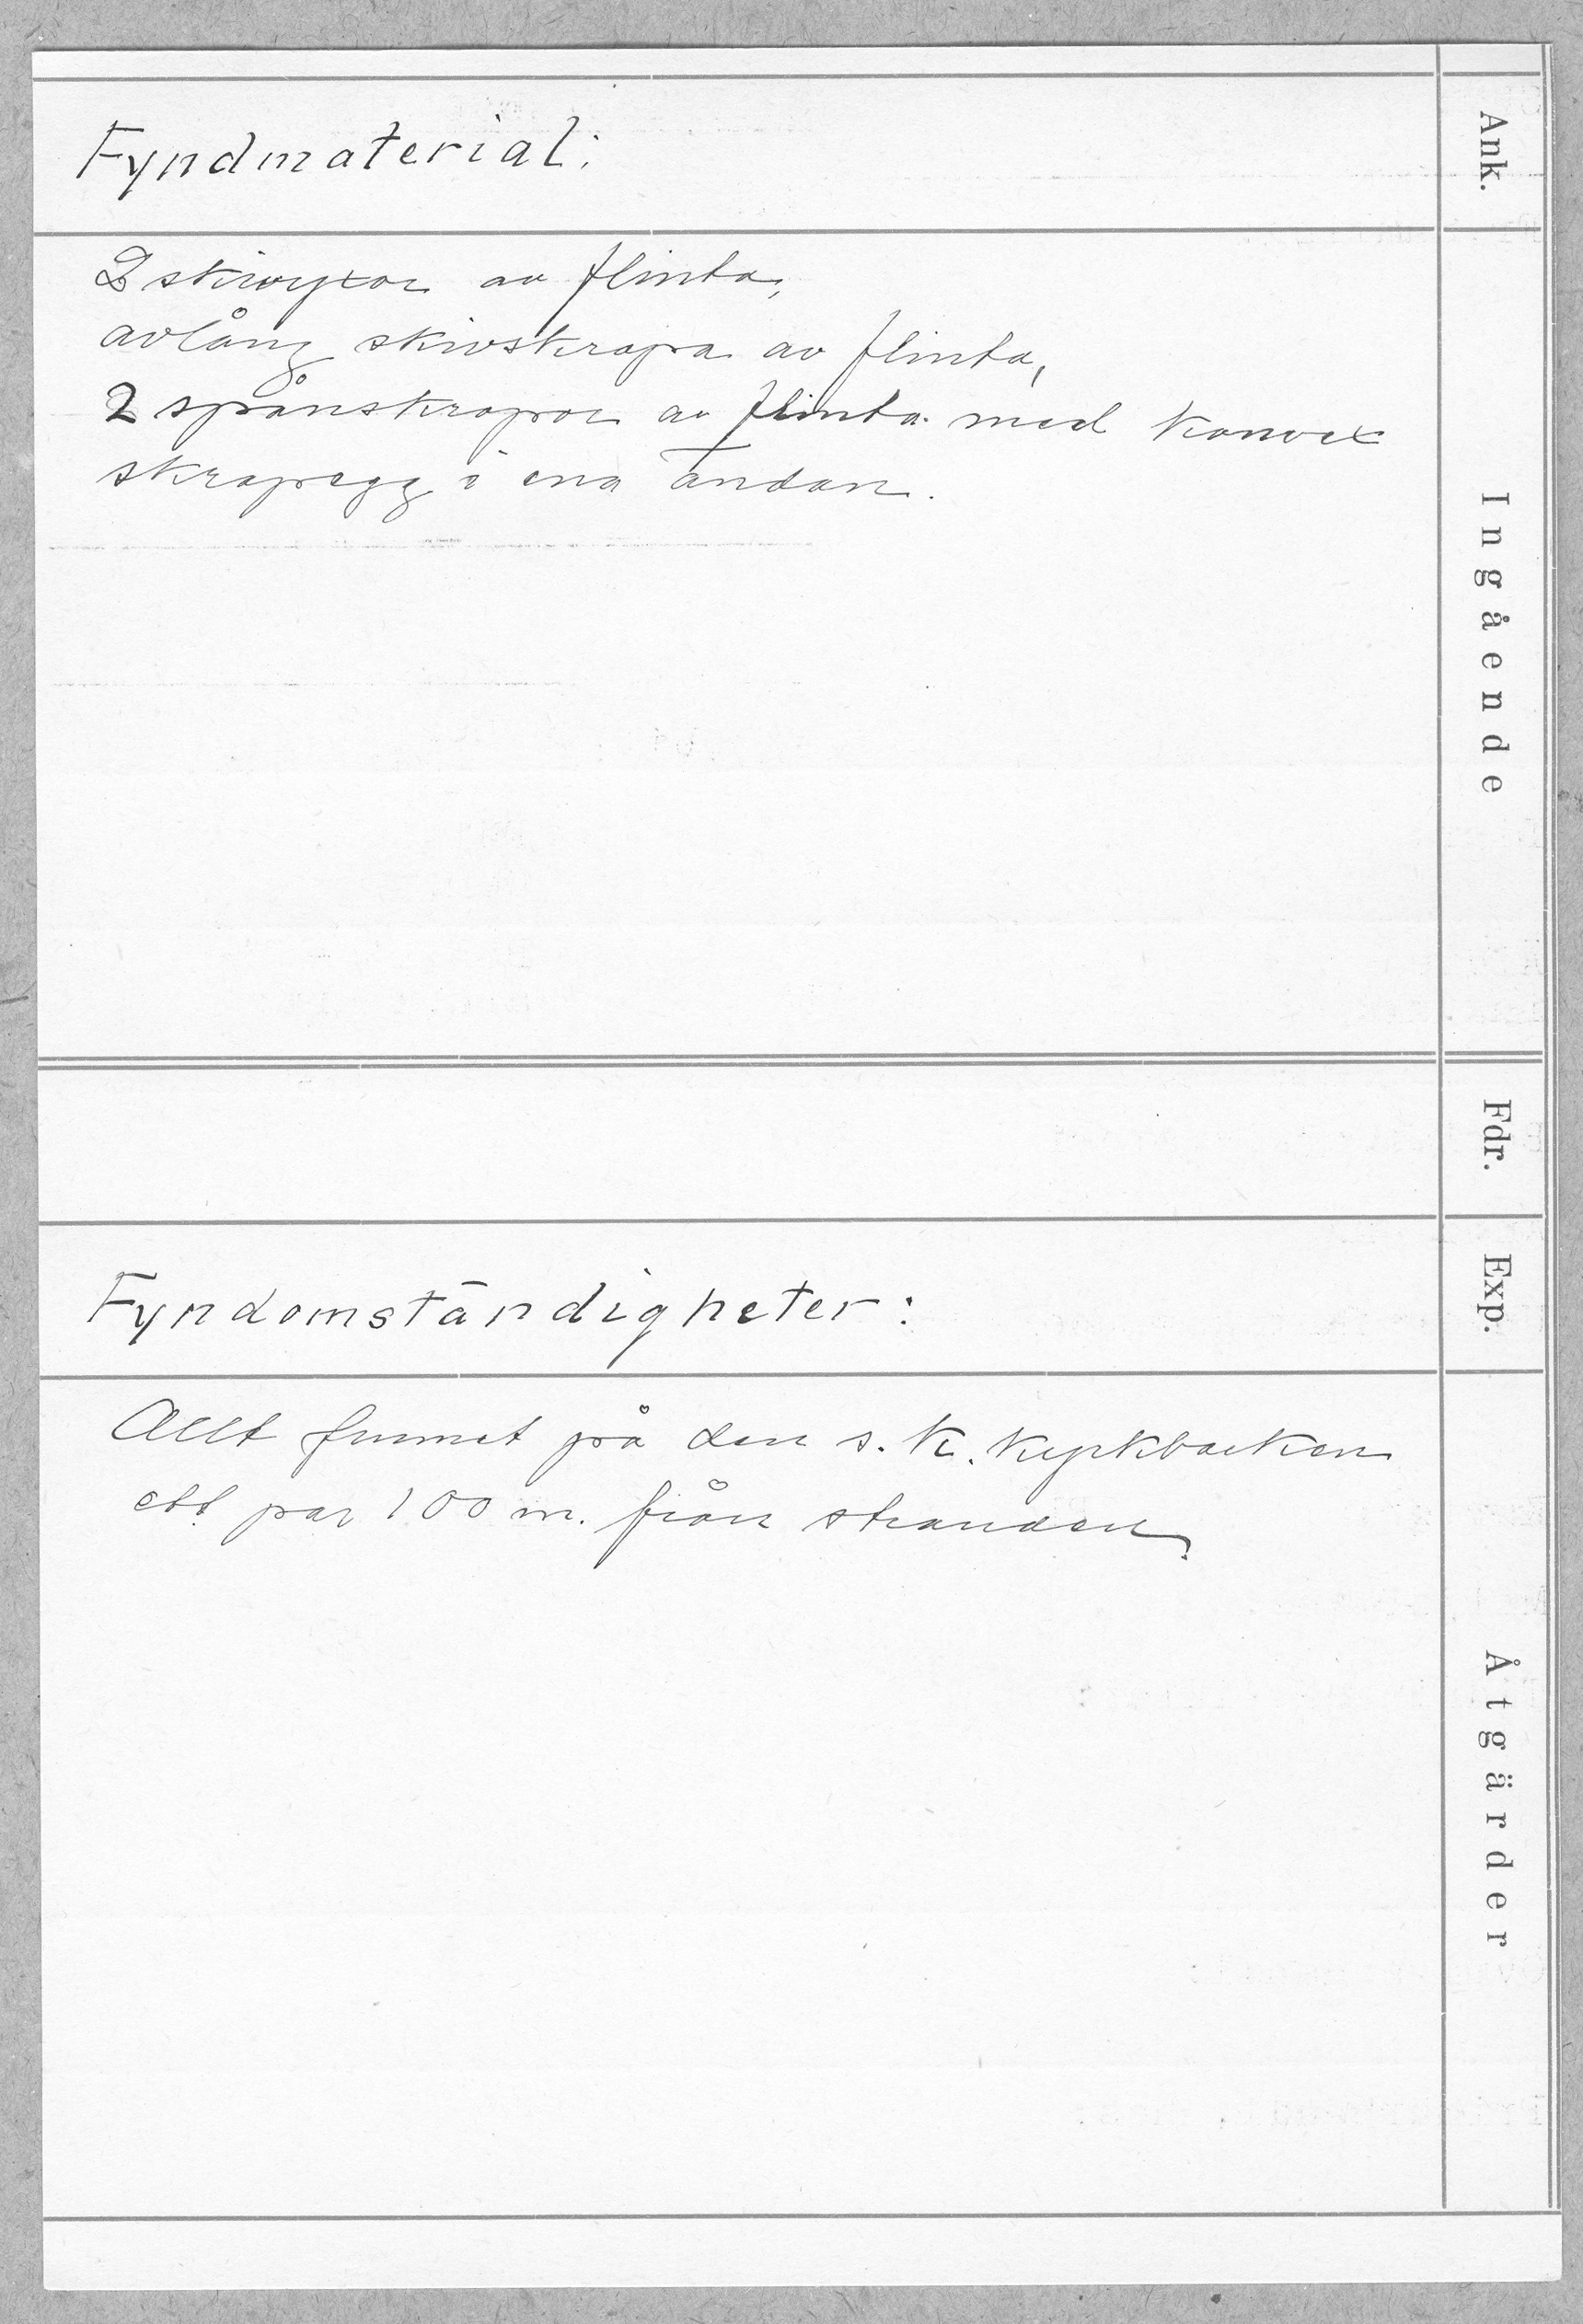 Fyndmaterial:
2 skivyxor av flinta,
avlång skivskrapa av flinta,
2 spånskrapor av flinta med konvex
skrapegg i ena ändan.
Fyndomständigheter:
Allt funnet på den s.k. Kyrkbacken
ett par 100 m. från stranden.
Ank.
Ingående
Fdr.
Exp.
Åtgärder